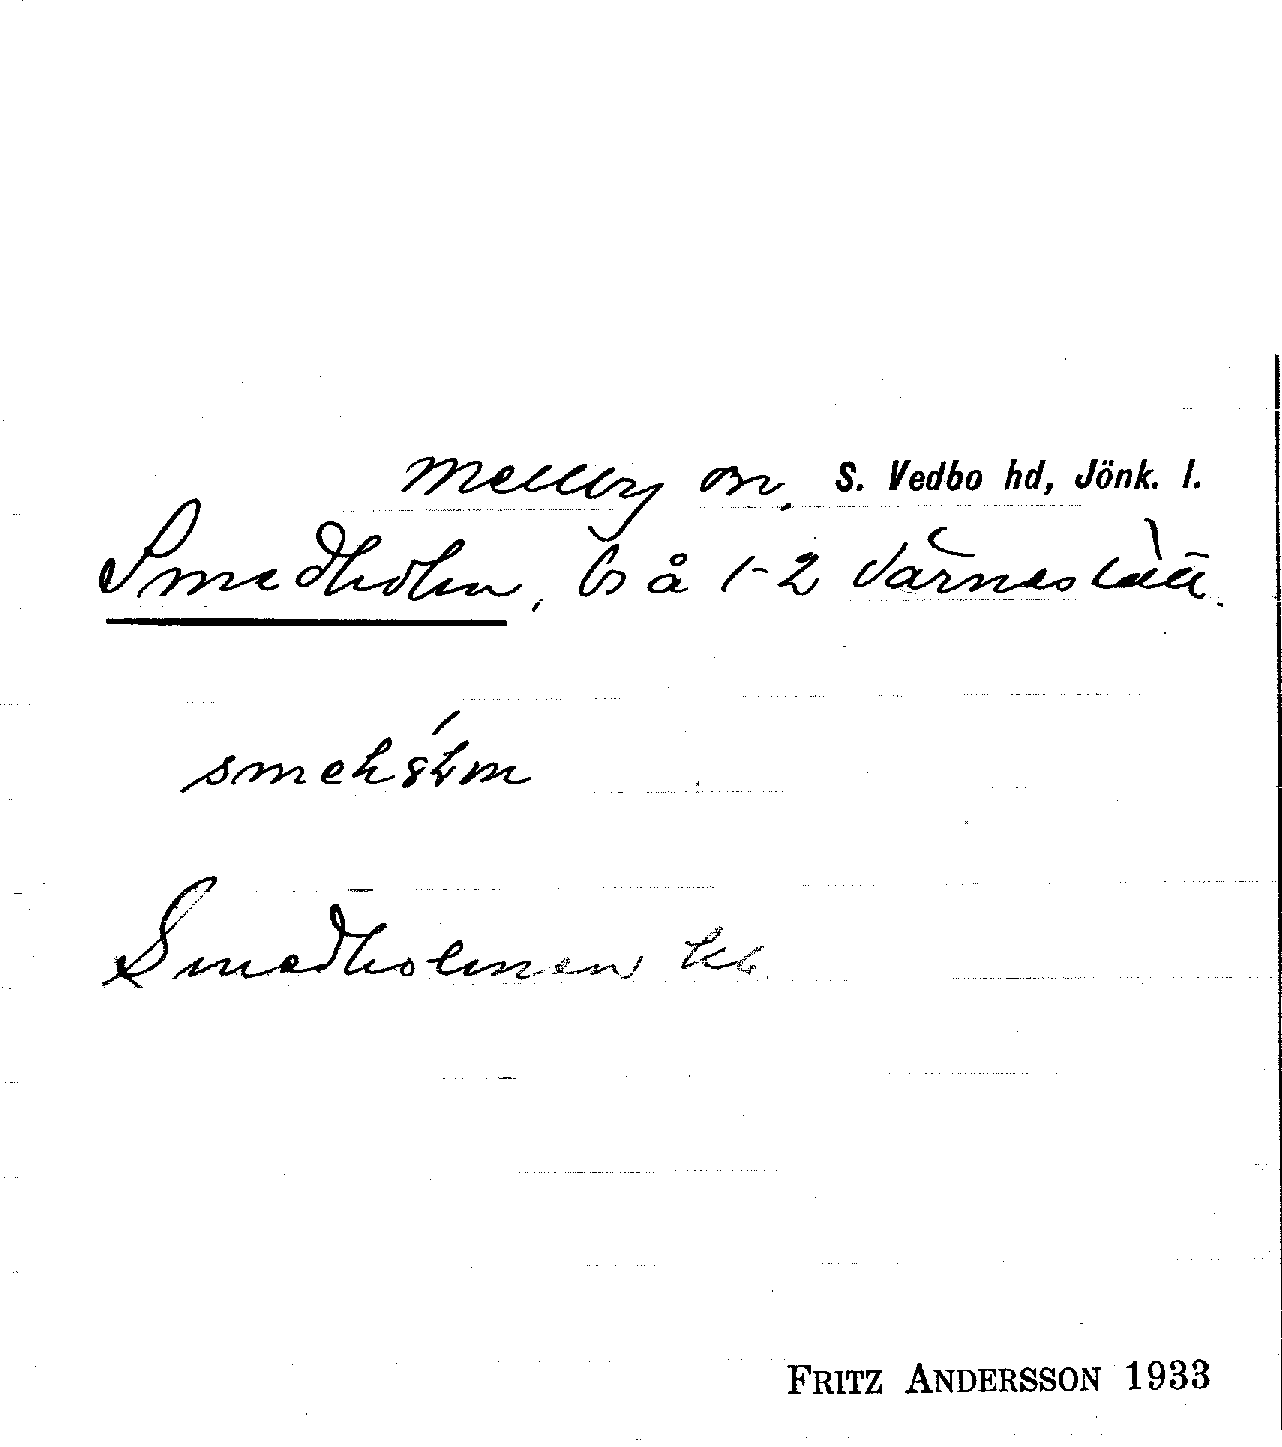 Mellby sn, S. Vedbo hd, Jönk. l.
Smedholm, bs å 1-2 Värneslätt.
Smedholmen kk
FRITZ ANDERSSON 1933